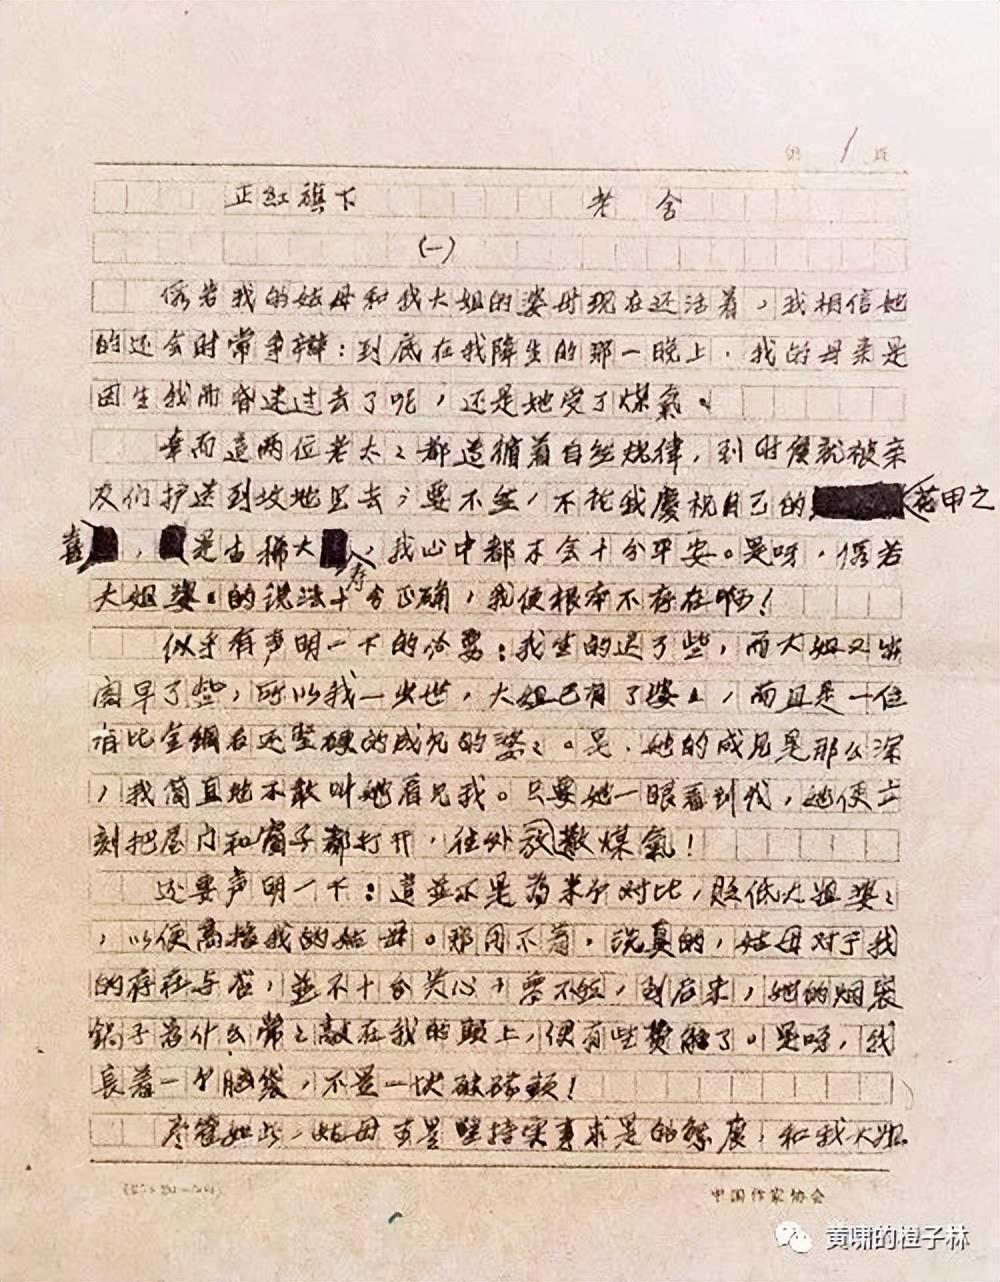 第 1 页
正紅旗下 老舍
(一)
假若我的姑母和我大姐的婆母现在还活着，我相信她
们还会时常争辩：到底在我降生的那一晚上，我的母亲是
因生我而昏迷过去了呢，还是她受了煤氣。
幸而這两位老太〻都遵循着自然规律，到时候就被亲
友们护送到坟地里去；要不然，不论我慶祝自己的花甲之
喜，是古稀大寿，我心中都不会十分平安。是呀，假若
大姐婆〻的说法十分正确，我便根本不存在啊！
似乎有声明一下的必要：我生的迟了些，而大姐又出
阁早了些，所以我一出世，大姐已有了婆〻，而且是一位
有比金鋼石还坚硬的成见的婆〻。是，她的成见是那么深
，我简直地不敢叫她看见我。只要她一眼看到我，她便立
刻把屋门和窗子都打开，往外放散煤氣！
还要声明一下：這並不是为来个对比，贬低大姐婆〻
，以便高抬我的姑母。那用不着，说真的，姑母对于我
的存在与否，並不十分关心；要不然，到后来，她的烟袋
锅子为什么常〻敲在我的頭上，便有些费解了。是呀，我
長着一个脑袋，不是一块破砖頭！
尽管如此，姑母可是坚持实事求是的態度，和我大姐
中国作家协会
黄啸的橙子林